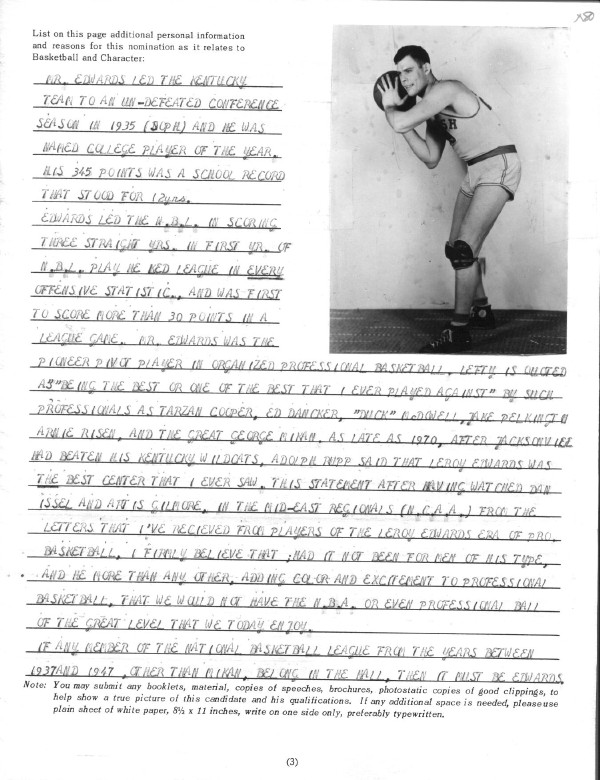 780
List on this page additional personal information
and reasons for this nomination as it relates to
Basketball and Character:
MR. EDWARDS LED THE KENTUCKY
TEAM TO AN UN-DEFEATED CONFERENCE
SEASON IN 1935 (SOPH) AND HE WAS
NAMED COLLEGE PLAYER OF THE YEAR.
HIS 345 POINTS WAS A SCHOOL RECORD
THAT STOOD FOR 12yrs.
EDWARDS LED THE N.B.L. IN SCORING
THREE STRAIGHT YRS. IN FIRST YR. OF
N.B.L. PLAY HE LED LEAGUE IN EVERY
OFFENSIVE STATISTIC., AND WAS FIRST
TO SCORE MORE THAN 30 POINTS IN A
LEAGUE GAME. MR. EDWARDS WAS THE
PIONEER PIVOT PLAYER IN ORGANIZED PROFESSIONAL BASKETBALL. LEFTY IS QUOTED
AS "BEING THE BEST OR ONE OF THE BEST THAT I EVER PLAYED AGAINST" BY SUCH
PROFESSIONALS AS TARZAN COOPER, ED DANCKER, "DUCK" McDOWELL, JAKE PELKINGTON
ARNIE RISEN, AND THE GREAT GEORGE MIKAN. AS LATE AS 1970, AFTER JACKSONVILLE
HAD BEATEN HIS KENTUCKY WILDCATS, ADOLPH RUPP SAID THAT LEROY EDWARDS WAS
THE BEST CENTER THAT I EVER SAW. THIS STATEMENT AFTER HAVING WATCHED DAN
ISSEL AND ARTIS GILMORE, IN THE MID-EAST REGIONALS (N.C.A.A.) FROM THE
LETTERS THAT I'VE RECIEVED FROM PLAYERS OF THE LEROY EDWARDS ERA OF PRO.
BASKETBALL, I FIRMLY BELIEVE THAT ;HAD IT NOT BEEN FOR MEN OF HIS TYPE,
AND HE MORE THAN ANY OTHER, ADDING COLOR AND EXCITEMENT TO PROFESSIONAL
BASKETBALL, THAT WE WOULD NOT HAVE THE N.B.A. OR EVEN PROFESSIONAL BALL
OF THE GREAT LEVEL THAT WE TODAY ENJOY.
IF ANY MEMBER OF THE NATIONAL BASKETBALL LEAGUE FROM THE YEARS BETWEEN
1937 AND 1947 ,OTHER THAN MIKAN, BELONG IN THE HALL, THEN IT MUST BE EDWARDS.
Note: You may submit any booklets, material, copies of speeches, brochures, photostatic copies of good clippings, to
help show a true picture of this candidate and his qualifications. If any additional space is needed, please use
plain sheet of white paper, 8½ x 11 inches, write on one side only, preferably typewritten.
(3)